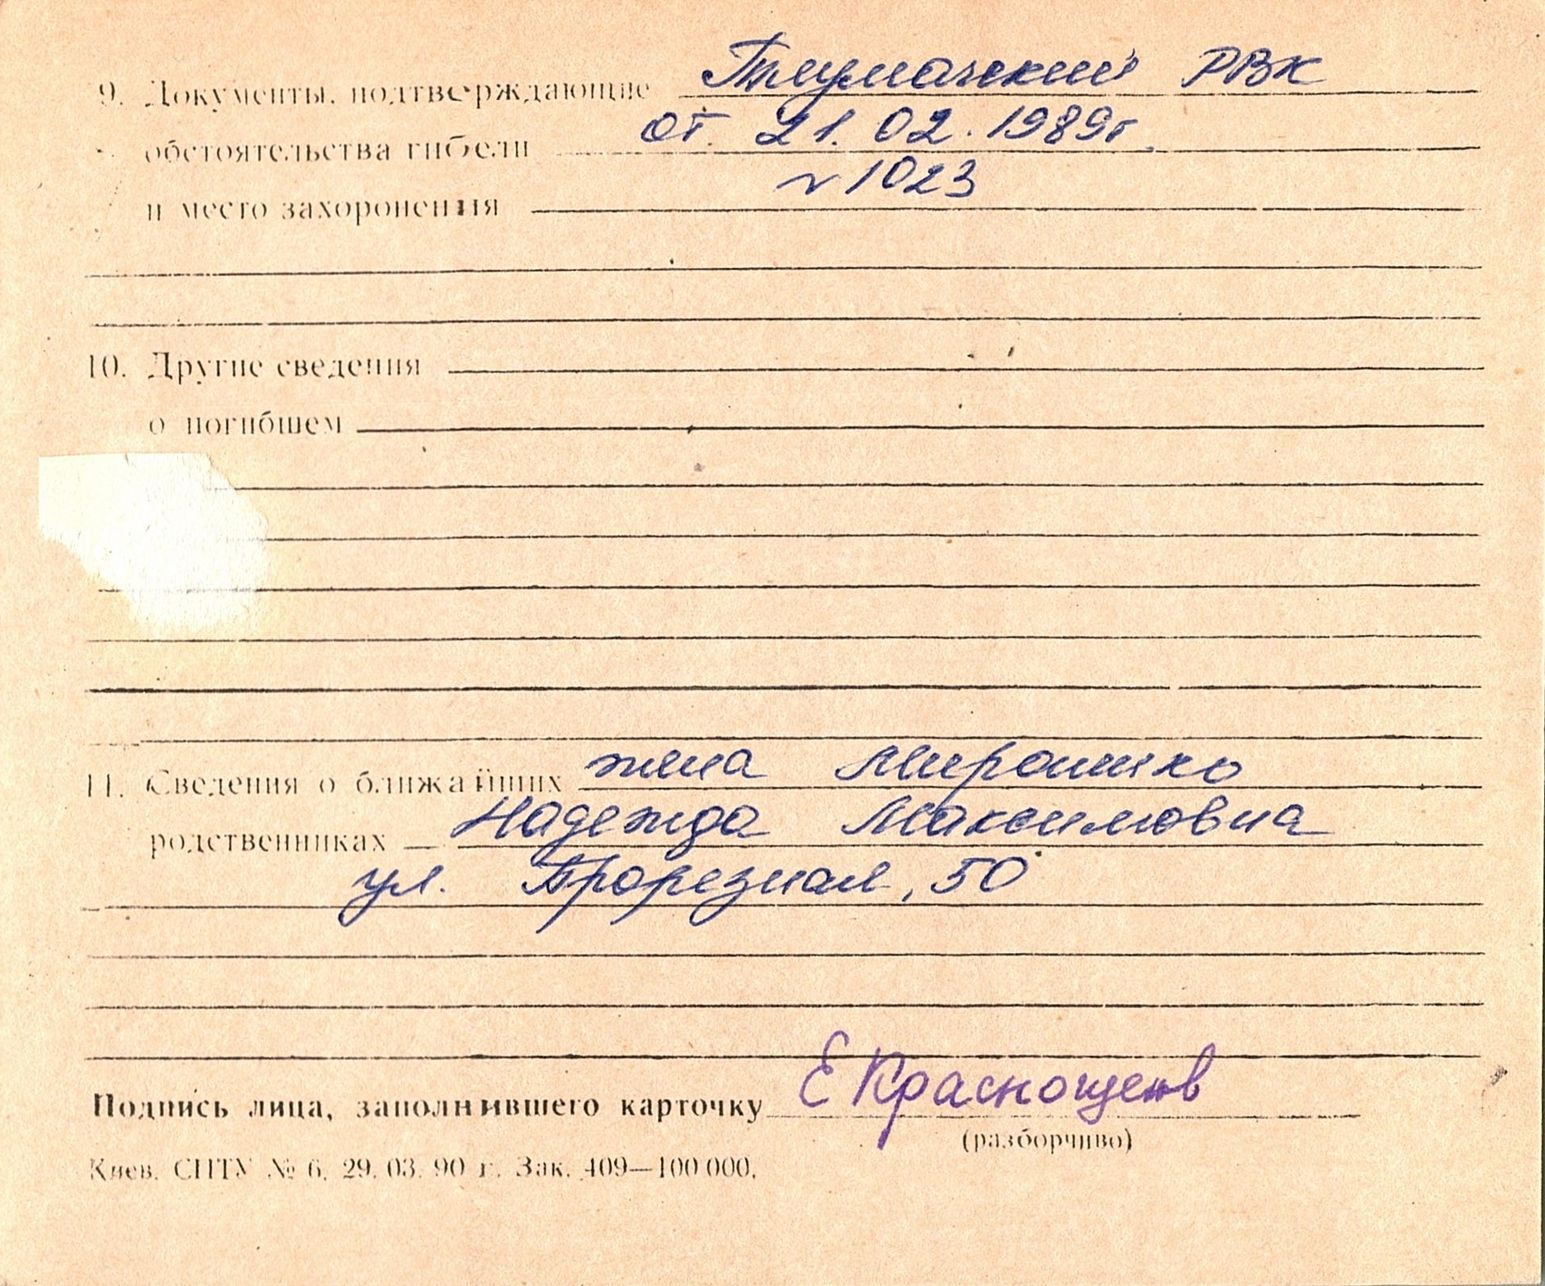 9. Документы, подтверждающие Тлумачский РВК
обстоятельства гибели от 21.02.1989г.
и место захоронения № 1023
10. Другие сведения
о погибшем
11. Сведения о ближайших жена Мирошко
родственниках Надежда Максимовна
ул. Прорезная, 50
Подпись лица, заполнившего карточку Е Краснощеков
(разборчиво)
Киев. СПТУ № 6, 29. 03. 90 г. Зак. 409—100 000.